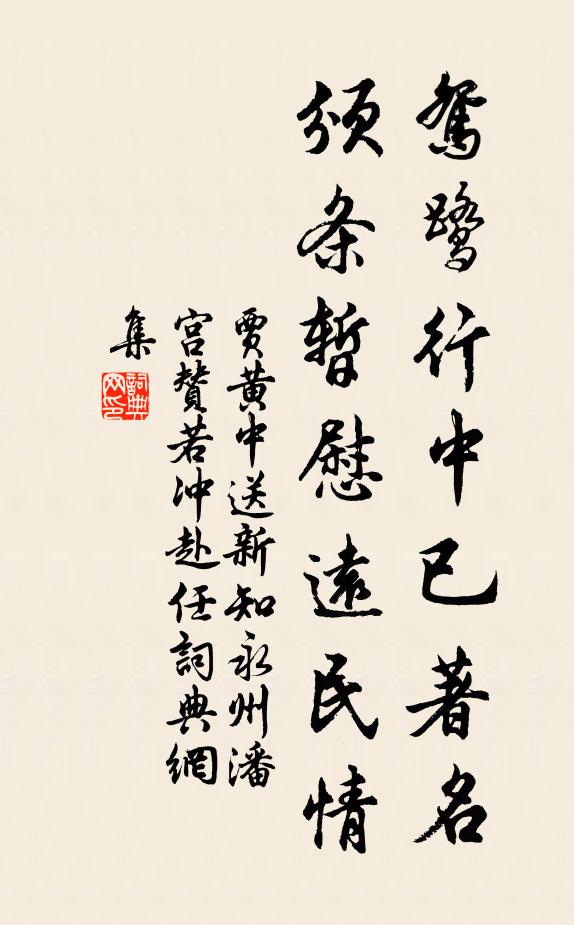 鴛鷺行中已著名
頒条暫慰遠民情
賈黃中送新知永州潘
宮贊若冲赴任詞典網
集
詞典
网印